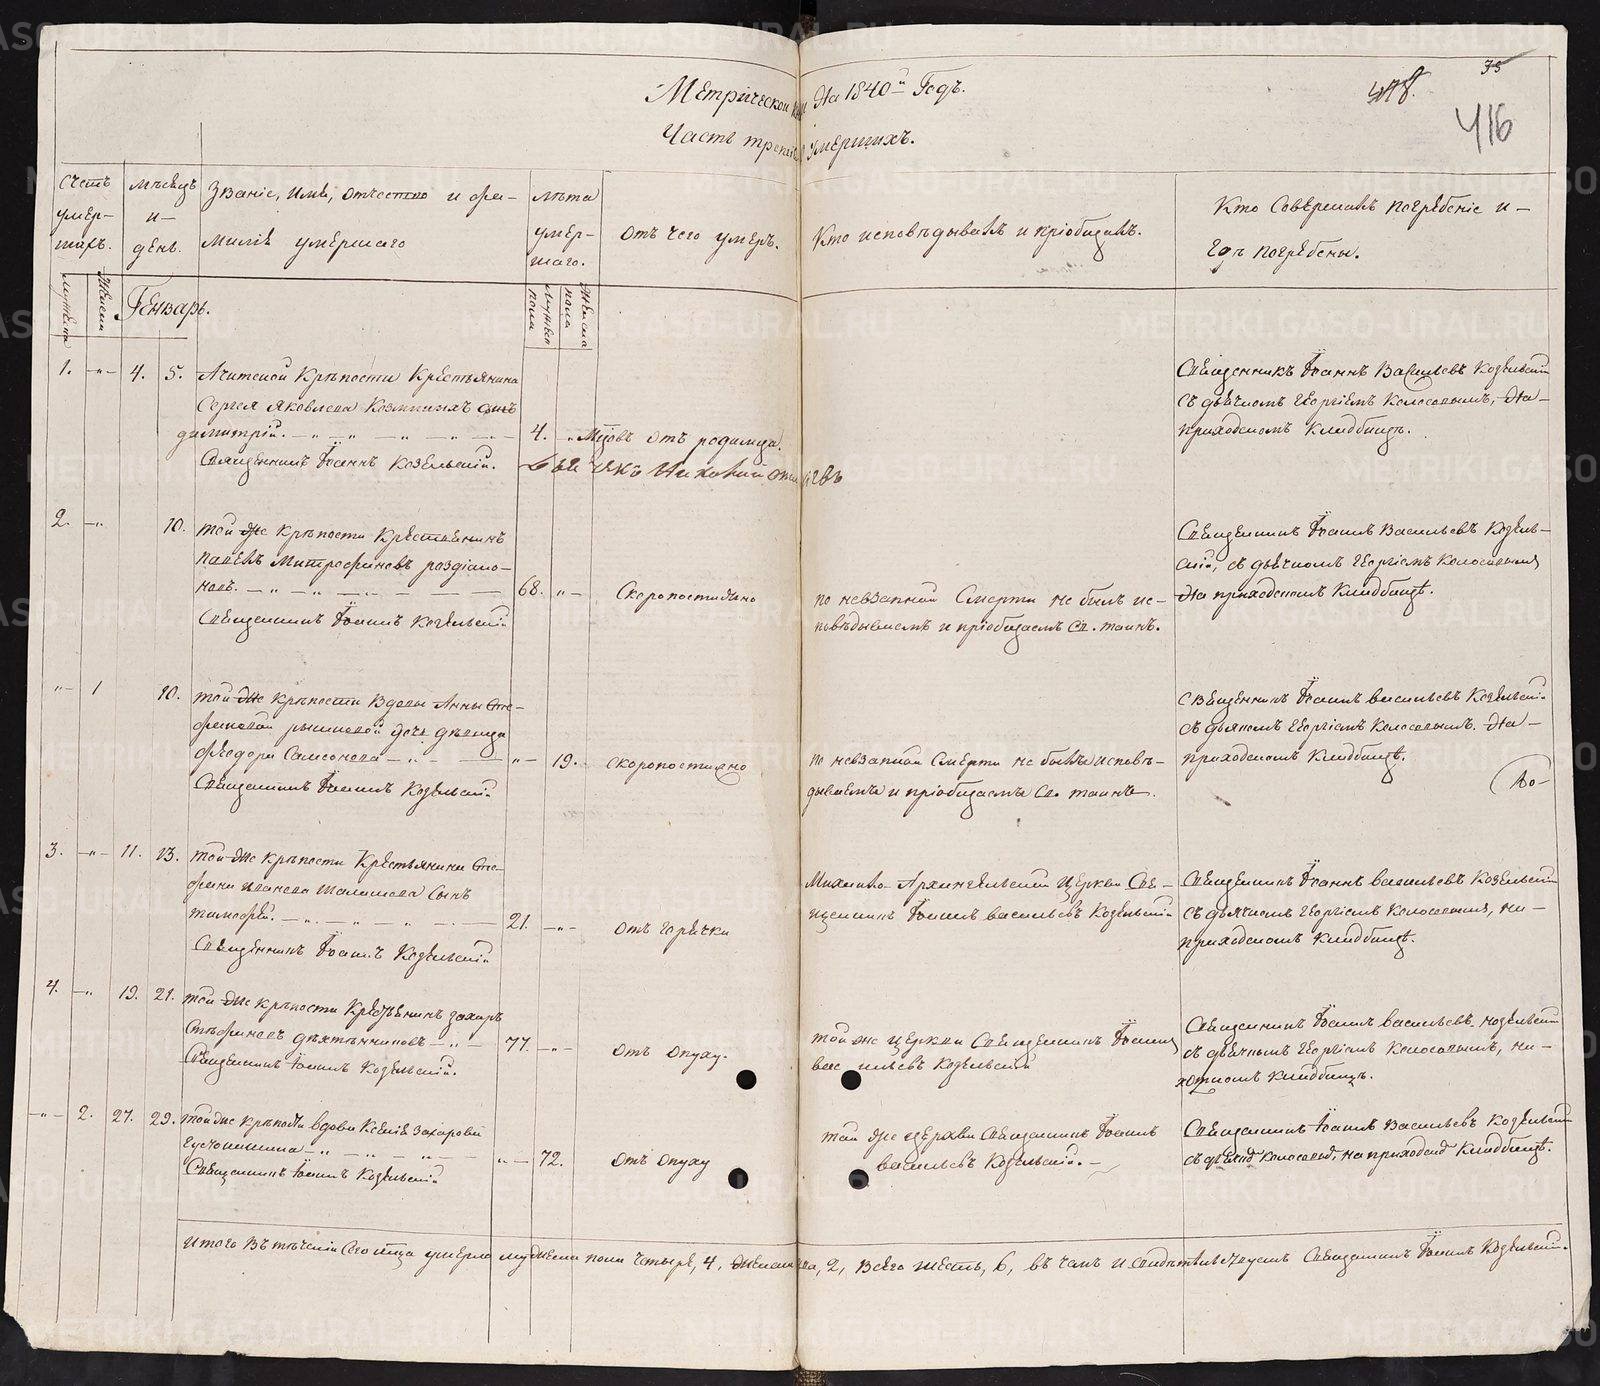 Метрической книги На 1840й Годъ.
Часть третія Умершихъ.
35
416
Счетъ умер-шихъ.
мѣсяцъ и день.
Званіе, имя, отчество и фа-
милія умершаго
лѣта умер-шаго.
Отъ чего умеръ.
Кто исповѣдывалъ и пріобщалъ.
Кто Совершалъ погребеніе и
гдѣ погребены.
мужеска
женска
Генварь.
мужеска пола
женска пола
1. -„- 4. 5.
Ачитской Крѣпости Крестьянина
Сергея Яковлева Козминыхъ сынъ
Димитрій.
4.
отъ родимца.
Священникъ Іоаннъ Козельскій.
Священникъ Іоаннъ Васильевъ Козельскій
съ дьячкомъ Георгіемъ Колосовымъ, На
приходскомъ Кладбищѣ.
2. -„- 10.
той же крѣпости Крестьянинъ
Павелъ Митрофановъ
68. „-
Скоропостижно
Священникъ Іоаннъ Козельскій
по невзапной Смерти не былъ ис-
повѣдываемъ и пріобщаемъ Св. таинъ.
Священникъ Іоаннъ Васильевъ Козель-
скій, съ дьячкомъ Георгіемъ Колосовымъ
На приходскомъ Кладбищѣ.
„- 1 10.
той же крѣпости Вдовы Анны Сте-
фановой дочь дѣвица
Феодора Самсонова
„- 19.
скоропостижно
Священникъ Іоаннъ Козельскій
по невзапной Смерти не была исповѣ-
дываема и пріобщаема Св. таинъ.
Священникъ Іоаннъ Васильевъ Козельскій
съ дьячкомъ Георгіемъ Колосовымъ. На
приходскомъ Кладбищѣ.
3. -„- 11. 13.
той же крѣпости Крестьянина Сте-
фана Иванова Сынъ
Тимофей.
21. -„-
отъ горячки
Священникъ Іоаннъ Козельскій
Михаило-Архангельской Церкви Свя-
щенникъ Іоаннъ Васильевъ Козельскій
Священникъ Іоаннъ Васильевъ Козельскій
съ дьячкомъ Георгіемъ Колосовымъ, на
приходскомъ Кладбищѣ.
4. -„ 19. 21.
той же крѣпости Крестьянинъ Захаръ
Стефановъ
77. -„-
отъ опуху.
Священникъ Іоаннъ Козельскій.
той же церкви Священникъ Іоаннъ
Васильевъ Козельскій
Священникъ Іоаннъ Васильевъ Козельскій
съ дьячкомъ Георгіемъ Колосовымъ, на
Кладбищѣ.
-„- 2. 27. 29.
той же крѣпости вдова Ксенія Захарова
„- 72.
отъ опуху
Священникъ Іоаннъ Козельскій
той же церкви Священникъ Іоаннъ
Васильевъ Козельскій.
Священникъ Іоаннъ Васильевъ Козельскій
съ дьячкомъ Колосовымъ, на приходскомъ Кладбищѣ.
Итого Въ теченіи Сего мѣсяца умерло мужеска пола четыре, 4, женска пола, 2, Всего шесть, 6, въ чемъ и свидѣтельствуетъ Священникъ Іоаннъ Козельскій.
METRIKI.GASO-URAL.RU